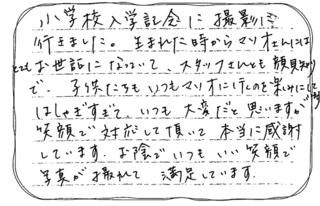 小学校入学記念に撮影に
行きました。生まれた時からマリオさんには
とてもお世話になっていて、スタッフさんとも顔見知り
で、子供たちもいつもマリオに行くのを楽しみにして
はしゃぎすぎて、いつも大変だと思いますが
笑顔で対応して頂いて本当に感謝
しています お陰でいつもいい笑顔で
写真が撮れて満足しています。